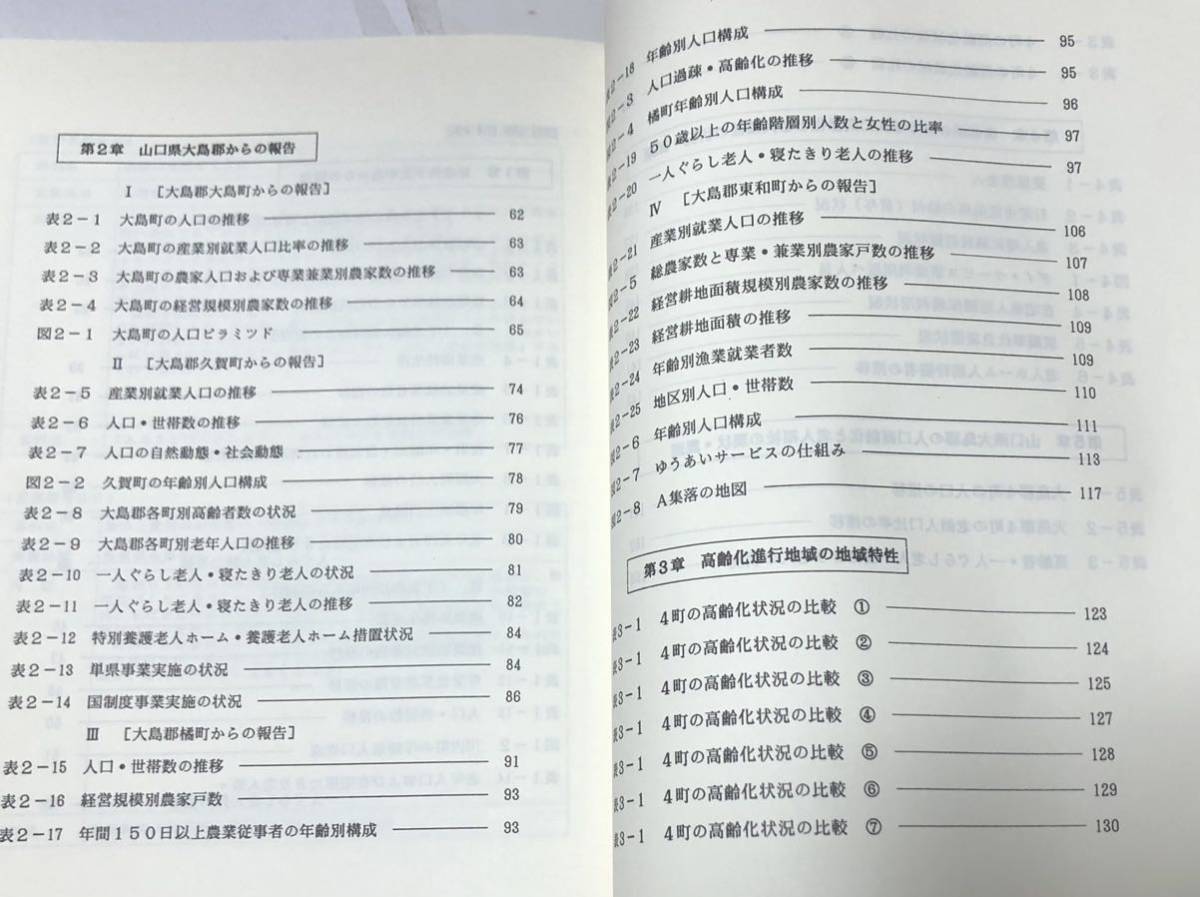 第2章　山口県大島郡からの報告
Ⅰ　[大島郡大島町からの報告]
表2－1　大島町の人口の推移 ―― 62
表2－2　大島町の産業別就業人口比率の推移 ―― 63
表2－3　大島町の農家人口および専業兼業別農家数の推移 ―― 63
表2－4　大島町の経営規模別農家数の推移 ―― 64
図2－1　大島町の人口ピラミッド ―― 65
Ⅱ　[大島郡久賀町からの報告]
表2－5　産業別就業人口の推移 ―― 74
表2－6　人口・世帯数の推移 ―― 76
表2－7　人口の自然動態・社会動態 ―― 77
図2－2　久賀町の年齢別人口構成 ―― 78
表2－8　大島郡各町別高齢者数の状況 ―― 79
表2－9　大島郡各町別老年人口の推移 ―― 80
表2－10　一人ぐらし老人・寝たきり老人の状況 ―― 81
表2－11　一人ぐらし老人・寝たきり老人の推移 ―― 82
表2－12　特別養護老人ホーム・養護老人ホーム措置状況 ―― 84
表2－13　単県事業実施の状況 ―― 84
表2－14　国制度事業実施の状況 ―― 86
Ⅲ　[大島郡橘町からの報告]
表2－15　人口・世帯数の推移 ―― 91
表2－16　経営規模別農家戸数 ―― 93
表2－17　年間150日以上農業従事者の年齢別構成 ―― 93
表2－18　年齢別人口構成 ―― 95
2－3　人口過疎・高齢化の推移 ―― 95
2－4　橘町年齢別人口構成 ―― 96
表2－19　50歳以上の年齢階層別人数と女性の比率 ―― 97
表2－20　一人ぐらし老人・寝たきり老人の推移 ―― 97
Ⅳ　[大島郡東和町からの報告]
表2－21　産業別就業人口の推移 ―― 106
2－5　総農家数と専業・兼業別農家戸数の推移 ―― 107
表2－22　経営耕地面積規模別農家数の推移 ―― 108
表2－23　経営耕地面積の推移 ―― 109
表2－24　年齢別漁業就業者数 ―― 109
表2－25　地区別人口・世帯数 ―― 110
2－6　年齢別人口構成 ―― 111
2－7　ゆうあいサービスの仕組み ―― 113
2－8　A集落の地図 ―― 117
第3章　高齢化進行地域の地域特性
表3－1　4町の高齢化状況の比較　① ―― 123
表3－1　4町の高齢化状況の比較　② ―― 124
表3－1　4町の高齢化状況の比較　③ ―― 125
表3－1　4町の高齢化状況の比較　④ ―― 127
表3－1　4町の高齢化状況の比較　⑤ ―― 128
表3－1　4町の高齢化状況の比較　⑥ ―― 129
表3－1　4町の高齢化状況の比較　⑦ ―― 130